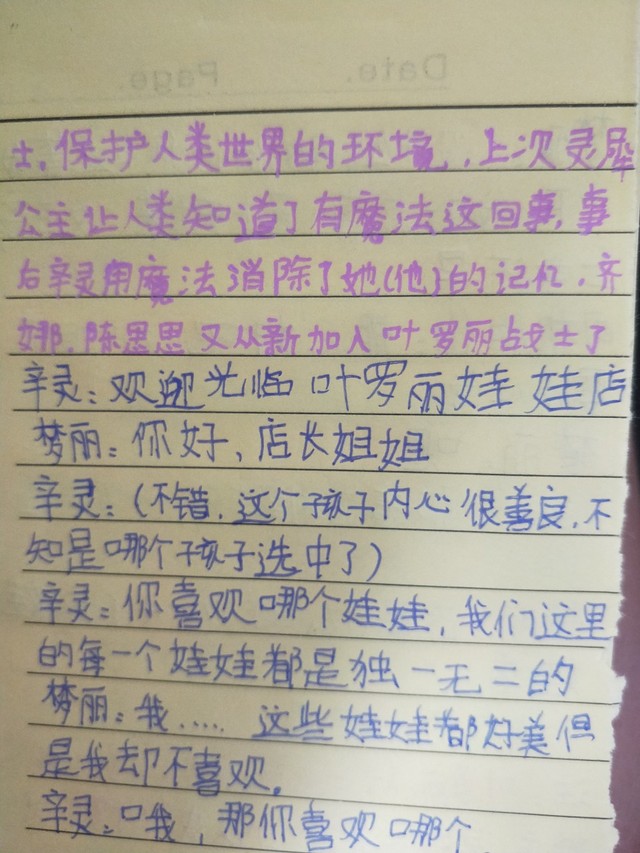 Date. Page.
士，保护人类世界的环境，上次灵犀
公主让人类知道了有魔法这回事，事
后辛灵用魔法消除了她(他)的记忆．齐
娜，陈思思又从新加入叶罗丽战士了
辛灵：欢迎光临 叶罗丽娃娃店
梦丽：你好、店长姐姐
辛灵：(不错，这个孩子内心很善良，不
知是哪个孩子选中了)
辛灵：你喜欢哪个娃娃，我们这里
的每一个娃娃都是独一无二的
梦丽：我…… 这些娃娃都好美但
是我却不喜欢。
辛灵：哦，那你喜欢哪个